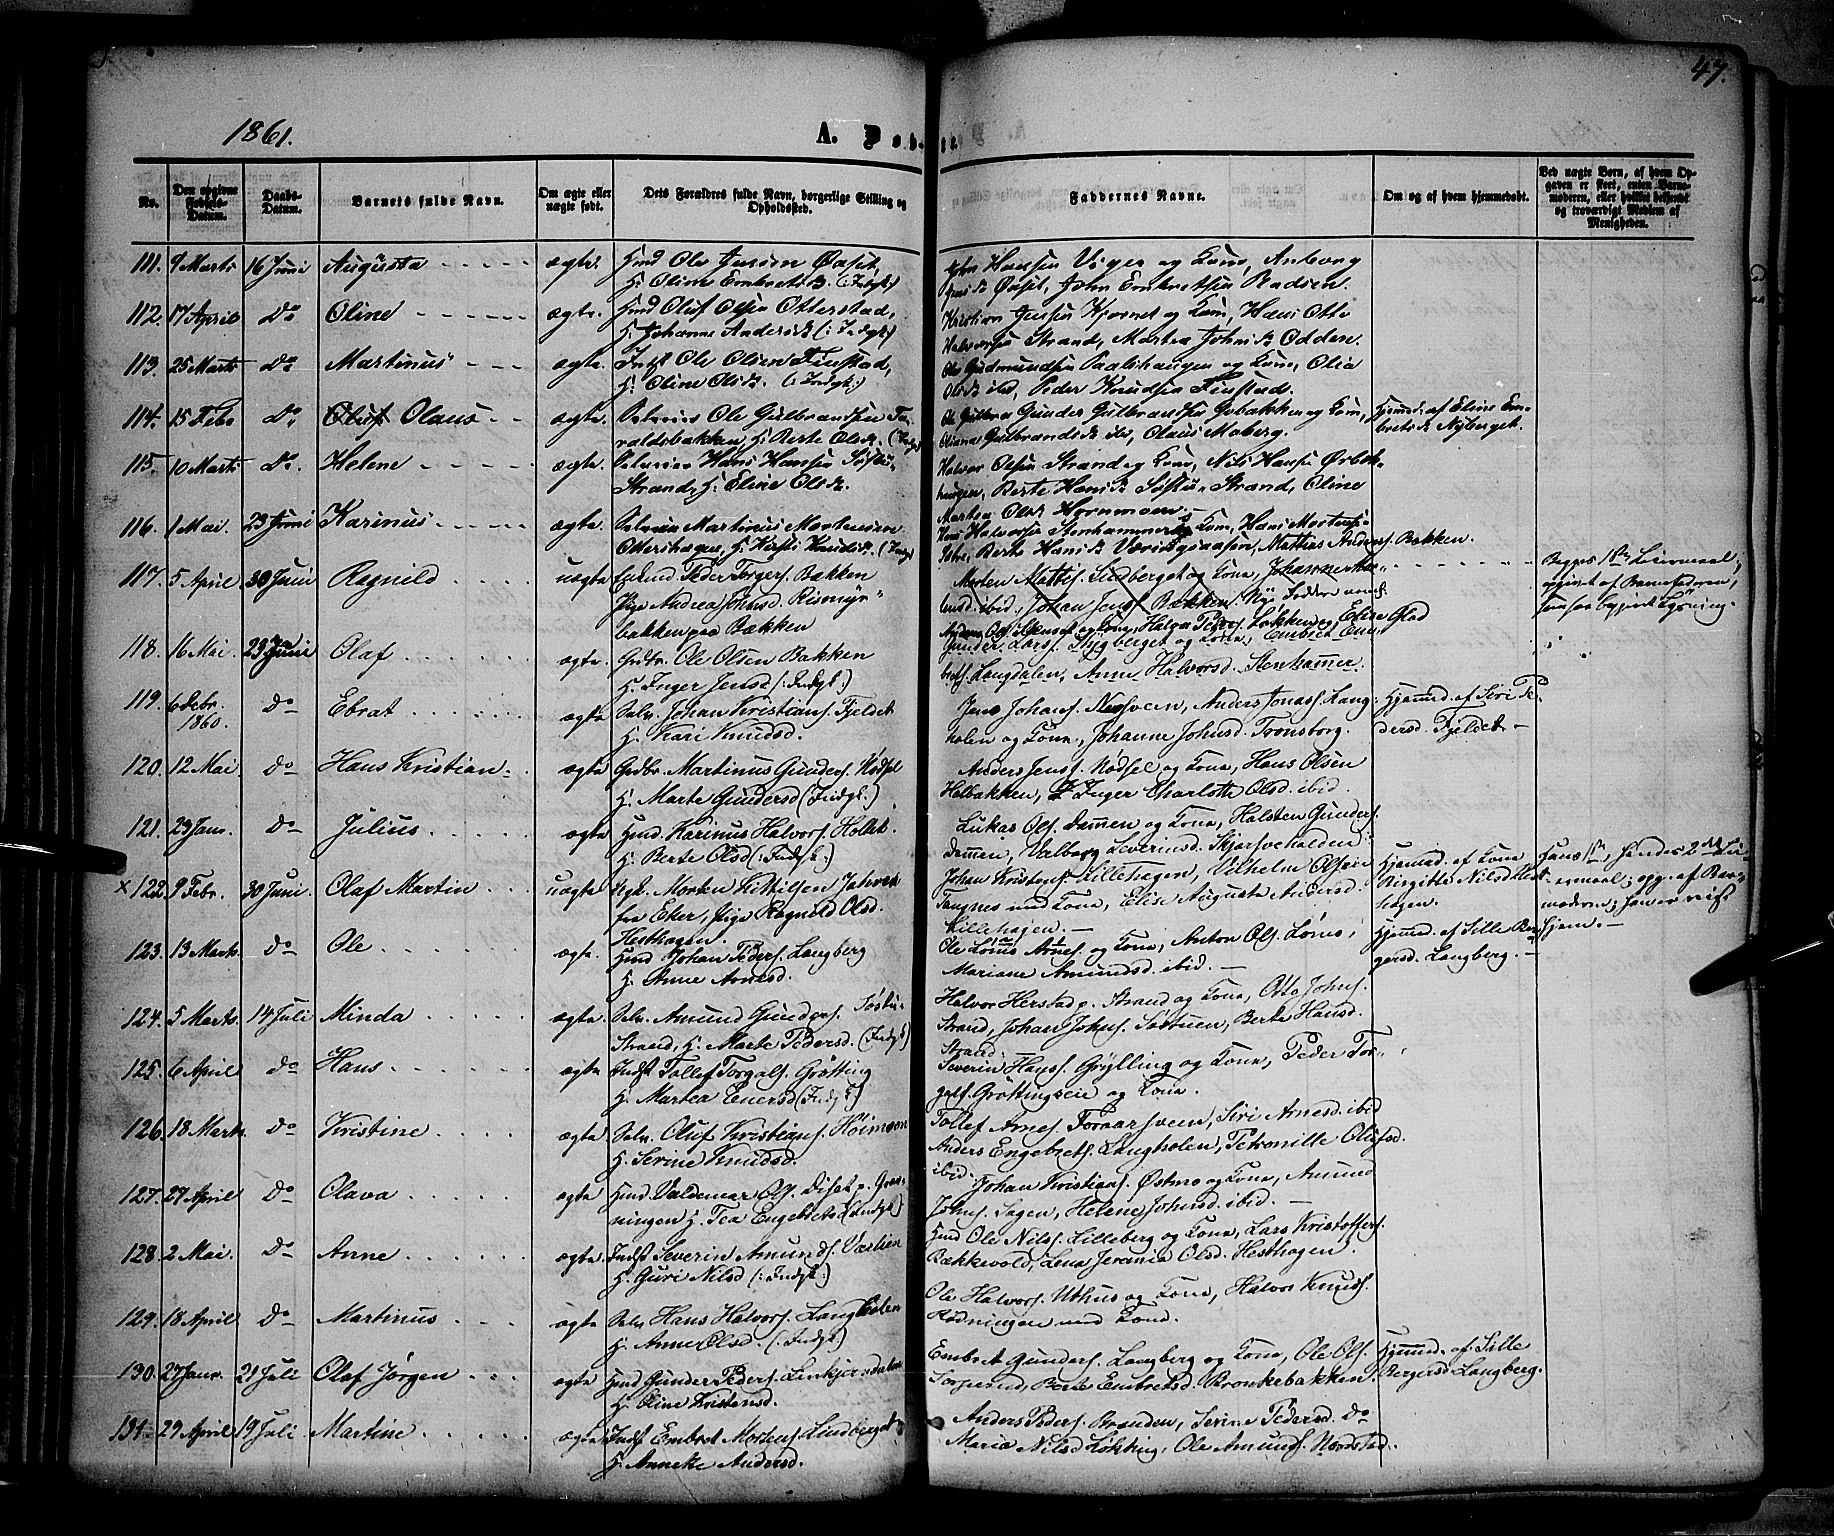 47.
1861.
A. Døbte.
No.
Den opgivne Fødsels-Datum.
Daabs-Datum.
Barnets fulde Navn.
Om ægte eller uægte født.
Dets Forældres fulde Navn, borgerlige Stilling og Opholdssted.
Faddernes Navne.
Om og af hvem hjemmedøbt.
Ved uægte Børn, af hvem Opgaven er skeet, enten Barnemoderen, eller hvilket beskjendt og troværdigt Medlem af Menigheden.
111. 9 Marts 16 Juni Augusta ægte. Huusmd Ole
H: Oline Embretsd. (: Indgk:)
Hansen og Kone, Anborg
John Embretsen
112. 17 April Do Oline ægte. Huusmd Oluf Olsen Otterstad,
H: Johanne Andersd. (: Indgk:)
Kristian Jensen og Kone, Hans Otto
Halvorsen Strand, Martea Johnsd. Odden.
113. 25 Marts Do Martinus ægte. Indst Ole Olsen Finstad,
H: Oline Olsd. (: Indgk:)
Ole Gudmundsen og Kone, Olia
Olsd. ibd, Peder Knudsen Finstad.
114. 15 Febr Do Olaus ægte. Selveier Ole Gulbrandsen
H: Berte Olsd. (Indgk)
Gunder Gulbrandsen Gobakken og Kone,
Gulbrandsd. ibd, Olaus Moberg.
Hjemd: af Eline Em-
bretsd. Nyberget.
115. 10 Marts Do Helene ægte. Selveier Hans Hansen Søstu-
Strand, H: Eline Olsd.
Halvor Olsen Strand og Kone, Nils Hansen Ørbek-
haugen, Berte Hansd. Søstu-Strand, Oline
Martea Olsd.
116. 1 Mai. 23 Juni Karinus ægte. Selveier Martinus Mortensen
Ottershagen, H: Kirsti Knudsd. (Indgk)
Halvorsen Stenhammer og Kone, Hans Mortens.
Berte Hansd. Mathias Anders. Bakken.
117. 5 April 30 Juni Ragnild uægte Peder Torgers. Bakken
Pige Andrea Johnsd. Rismyr-
bakken paa Bakken
Morten Mathis. Lindberget og Kone, Johanne
ibid, Johan Jens. Bækken.
Begges 1ste Leiermaal;
opgivet af Barnefaderen;
118. 16 Mai 23 Juni Olaf ægte. Grdbr. Ole Olsen Bakken
H. Inger Jensd (: Indgk:)
Gunder Lars. og Kone, Embret Em-
brets. Langdalen, Anne Halvorsd. Stenhammer.
119. 6 Febr. 1860. Do Ebrat ægte Selv. Johan Kristians. Fjeldet
H. Kari Knudsd.
Jens Johans. Anders Jonas. Lang-
holen og Kone, Johanne Johnsd. Tronsborg.
Hjemd. af Siri Pe-
dersd. Fjeldet.
120. 12 Mai Do Hans Kristian ægte Grdbr. Martinus Gunders. Nødsel
H. Marte Gundersd (Indgk.)
Anders Jens. Nødsel og Kone, Hans Olsen
Holbakken, Inger Charlotte Olsd. ibid.
121. 23 Janr. Do Julius ægte Huusmd Karinus Halvors. Holtet
H. Berte Olsd (: Indgk:)
Lukas Ols. Dammen og Kone, Halsten Gunders.
Dammen, Valborg Severinsd. Skjærvehalden.
x 122. 9 Febr. 30 Juni Olaf Martin uægte Ugk. Morten Ketilsen
fra Eker, Pige Ragnild Olsd.
Hesthagen.
Johan Kristens. Lillehagen, Vilhelm Olsen
Tangnes med Kone, Elise Augusta Andersd.
Lillehagen.
Hjemd. af Kone
Birgitte Nilsd Hest-
hagen.
Hans 1ste, hendes 2det Lei-
ermaal; opg. af Bar-
moderen; han er reist
hjem.
123. 13 Marts. Do Ole ægte. Huusmd Johan Peders. Langberg
H. Anne Arnesd.
Arnes. og Kone, Anton Ols.
Mariane Amundsd. ibid.
Hjemd. af Sille Ber-
gersd. Langberg.
124. 5 Marts. 14 Juli Minda ægte. Selv. Amund Gunders. Søstu-
Strand, H. Marte Pedersd. (Indgk.)
Halvor Herstad p. Strand og Kone, Otto Johns.
Strand, Johan Johns. Søstuen, Berte Hansd.
Strand.
125. 6 April Do Hans ægte Indst Tollef Torgals. Grøtting
H. Martea Enersd (Indgk.)
Severin Hans. Grylling og Kone, Peder Tor-
gals. Grøttingseie og Kone.
126. 18 Marts. Do Kristine ægte Selv. Oluf Kristians. Høimoen
H. Serine Knudsd.
Tollef Arnes. Foraarsveen, Siri Arnesd. ibid
Anders Engebrets. Langholen, Petronille Olufsd.
ibid.
127. 27 April Do Olava ægte Huusmd Valdemar Ols. Diset p. Grøn-
ningen H. Tea Engebretsd (Indgk.)
Johan Kristians. Østmo og Kone, Amund
Johns. Sagen, Helene Johnsd. ibid.
128. 2 Mai. Do Anne ægte. Indst Severin Amunds. Vaslien
H. Guri Nilsd (: Indgk:)
Huusmd Ole Nils. Lilleberg og Kone, Lars Kristoffers.
Bækkevold, Lena Jeremia Olsd. Hesthagen.
129. 18 April Do Martinus ægte Selv Hans Halvors. Langholen
H. Anne Olsd. (: Indgk:)
Ole Halvors. Uthus og Kone, Halvor Knuds.
Rødningen med Kone.
130. 27 Janr. 21 Juli Olaf Jørgen ægte Huusmd Gunder Peders.
H. Eline Kristensd.
Embret Gunders. Langberg og Kone, Ole Ols.
Berte Embretsd. Bronkebakken.
Hjemd. af Sille
Bergersd Langberg.
131. 29 April 19 Juli Martine ægte Indst Embret Mortens Lindberget
H. Anneke Andersd.
Anders Peders. Braaden, Serine Pedersd. Do
Maria Nilsd Løkting, Ole Amunds. Nordstad.